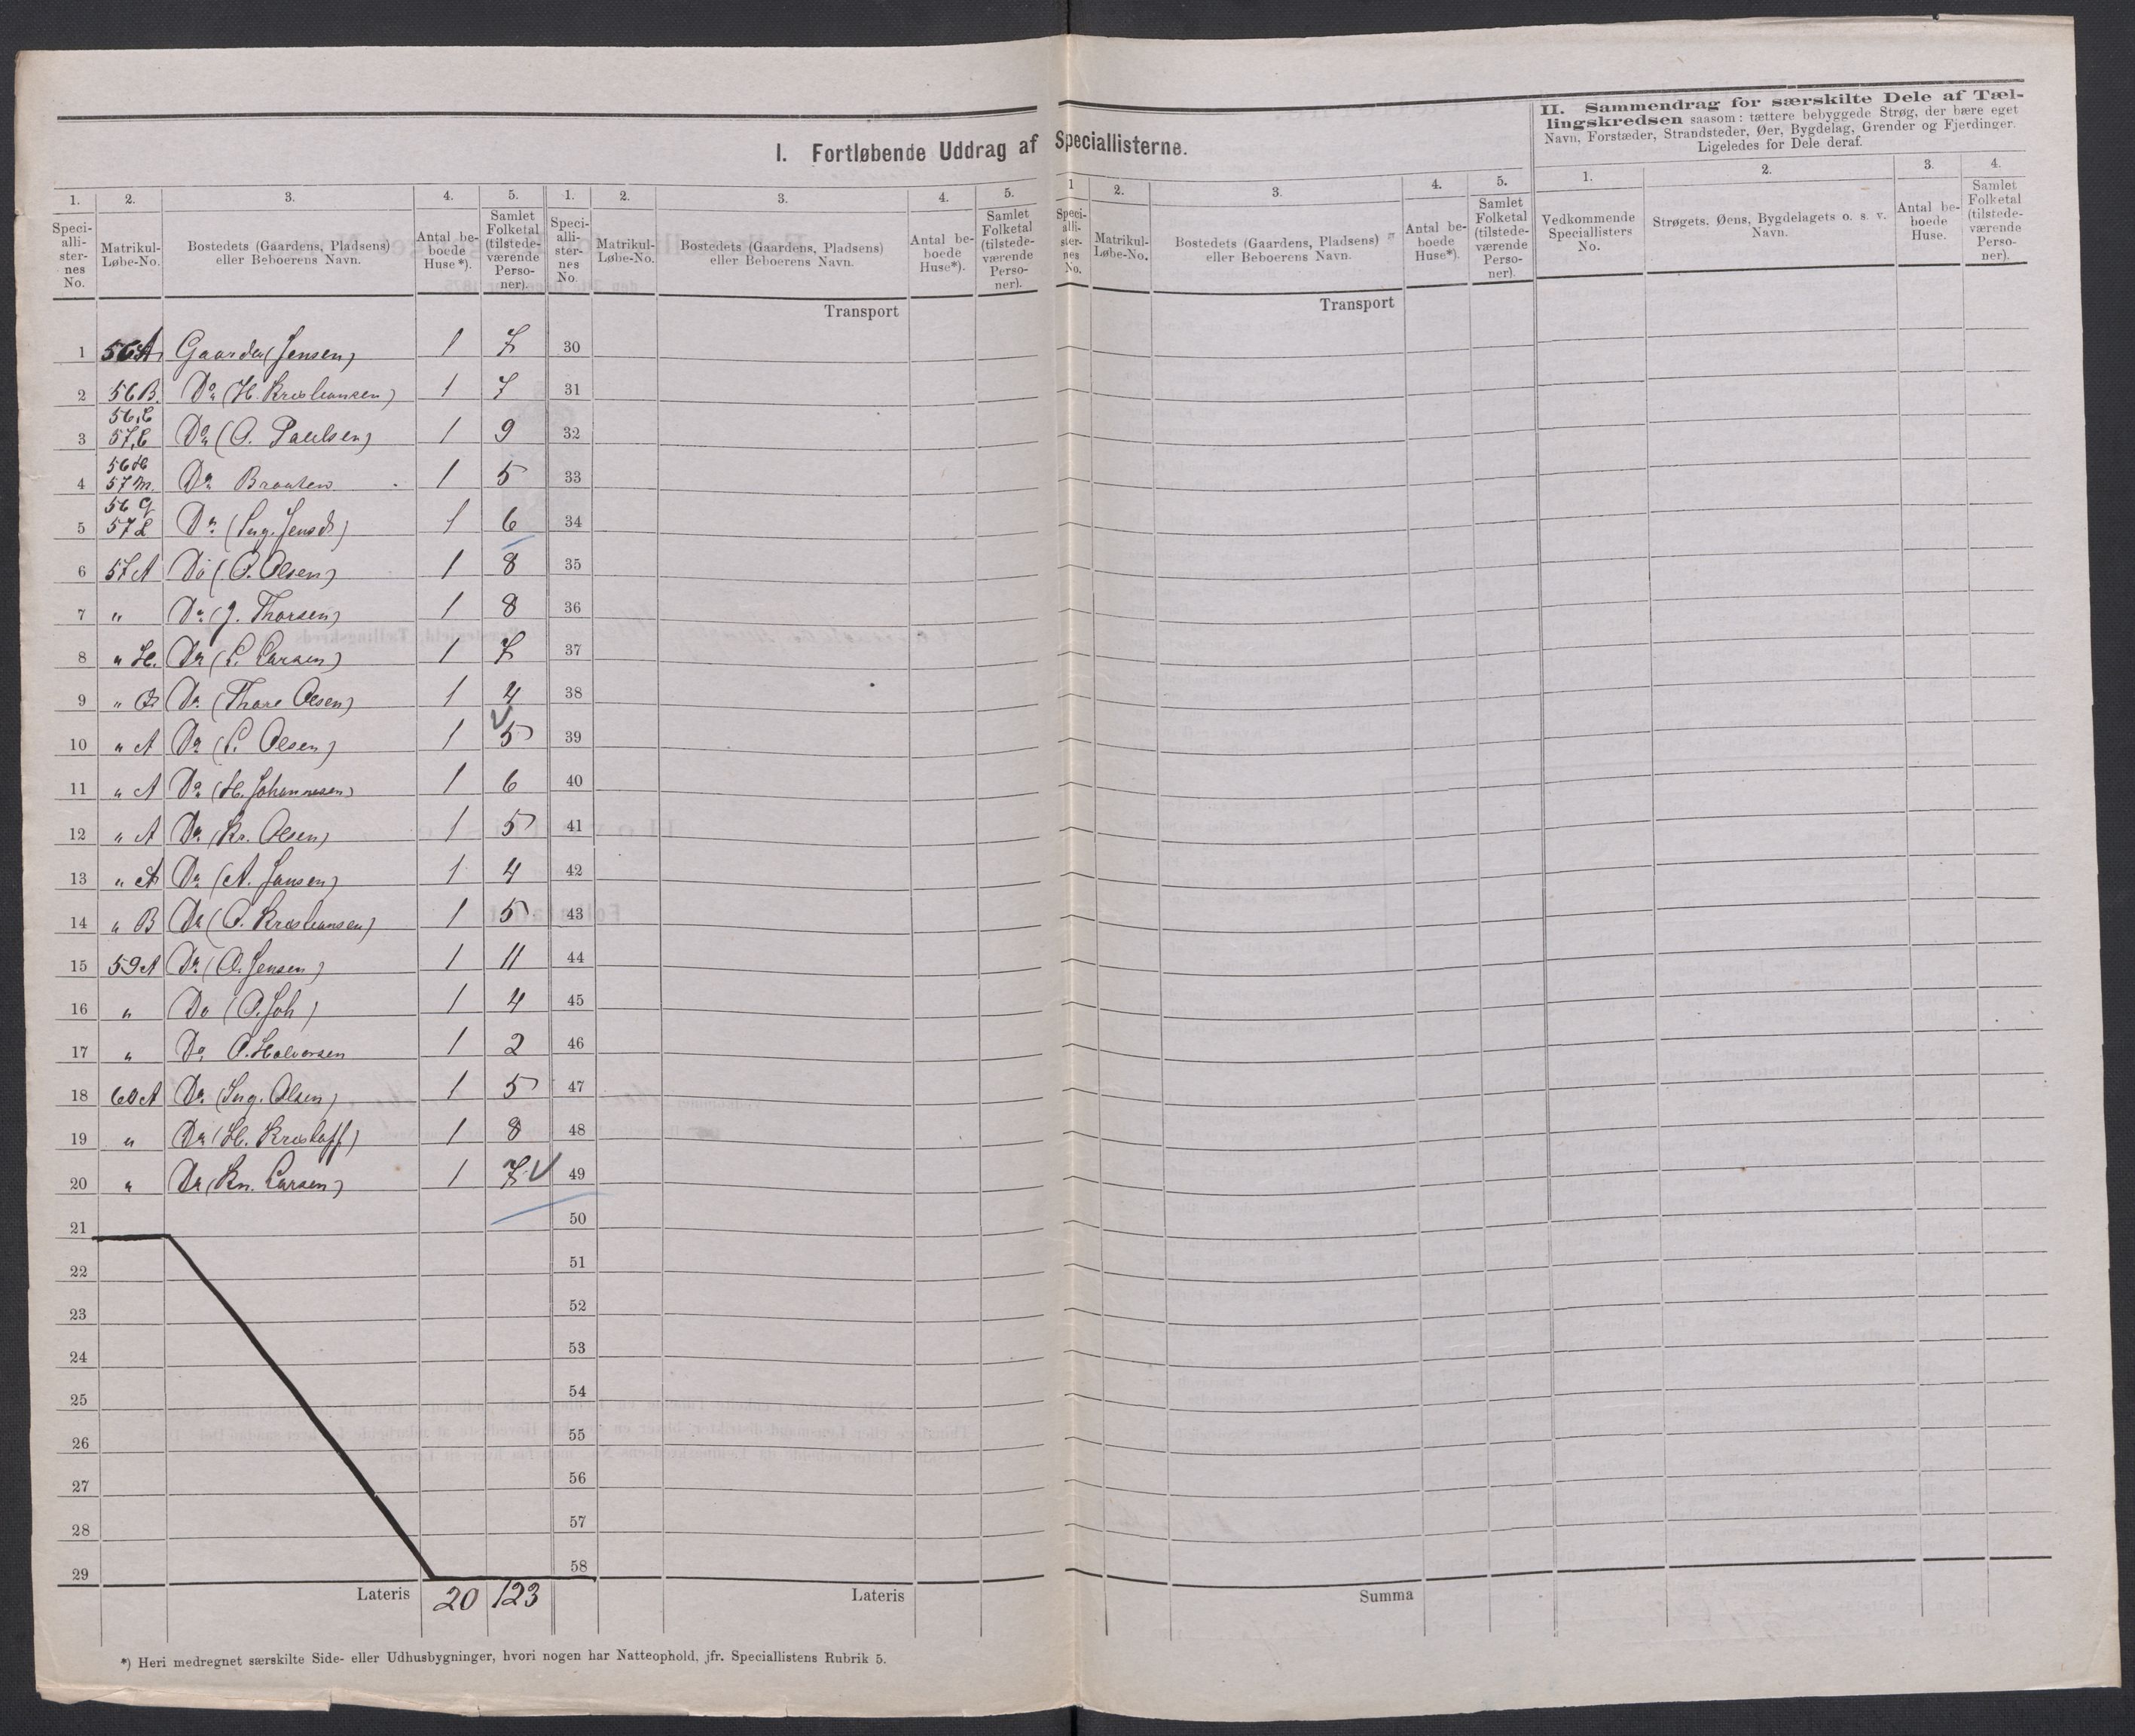 I. Fortløbende Uddrag af Speciallisterne.
II. Sammendrag for særskilte Dele af Tæl-
lingskredsen saasom: tættere bebyggede Strøg, der bære eget
Navn, Forstæder, Strandsteder, Øer, Bygdelag, Grender og Fjerdinger.
Ligeledes for Dele deraf.
1. 2. 3. 4. 5. 1. 2. 3. 4. 5. 1 2. 3. 4. 5. 1. 2. 3. 4.
Speci-alli-ster-nes No. Matrikul-Løbe-No. Bostedets (Gaardens, Pladsens) eller Beboerens Navn. Antal be-boede Huse*). Samlet Folketal (tilstede-værende Perso-ner).
Speci-alli-ster-nes No. Matrikul-Løbe-No. Bostedets (Gaardens, Pladsens) eller Beboerens Navn. Antal be-boede Huse*). Samlet Folketal (tilstede-værende Perso-ner).
Speci-alli-ster-nes No. Matrikul-Løbe-No. Bostedets (Gaardens, Pladsens) eller Beboerens Navn. Antal be-boede Huse*). Samlet Folketal (tilstede-værende Perso-ner).
Vedkommende Speciallisters No. Strøgets, Øens, Bygdelagets o. s. v. Navn. Antal be-boede Huse. Samlet Folketal (tilstede-værende Perso-ner).
Transport Transport
1 56A Gaarder (Jensen) 1 7 30
2 56B. Do (H. Kristiansen) 1 7 31
56,C
3 57,C Do (O. Paulsen) 1 9 32
56H
4 57M. Do Braaten 1 5 33
56G
5 57L Do (Ing. Jensd) 1 6 34
6 57A Do (O. Olsen) 1 8 35
7 " Do (J. Thorsen) 1 8 36
8 " H. Do (L. Larsen) 1 7 37
9 " Do (Thore Olsen) 1 4 38
10 " A Do (L. Olsen) 1 5 39
11 " A Do (H. Johannesen) 1 6 40
12 " A Do (Kr. Olsen) 1 5 41
13 " A Do (A. Jansen) 1 4 42
14 " B Do (O. Kristiansen) 1 5 43
15 59A Do (O. Jensen) 1 11 44
16 " Do (O. Joh) 1 4 45
17 " Do O. Halvorsen 1 2 46
18 60A Do (Ing. Olsen) 1 5 47
19 " Do (H. Kristoff) 1 8 48
20 " Do (Kn. Larsen) 1 7 49
21 50
22 51
23 52
24 53
25 54
26 55
27 56
28 57
29 58
Lateris 20 123 Lateris Summa
*) Heri medregnet særskilte Side- eller Udhusbygninger, hvori nogen har Natteophold, jfr. Speciallistens Rubrik 5.